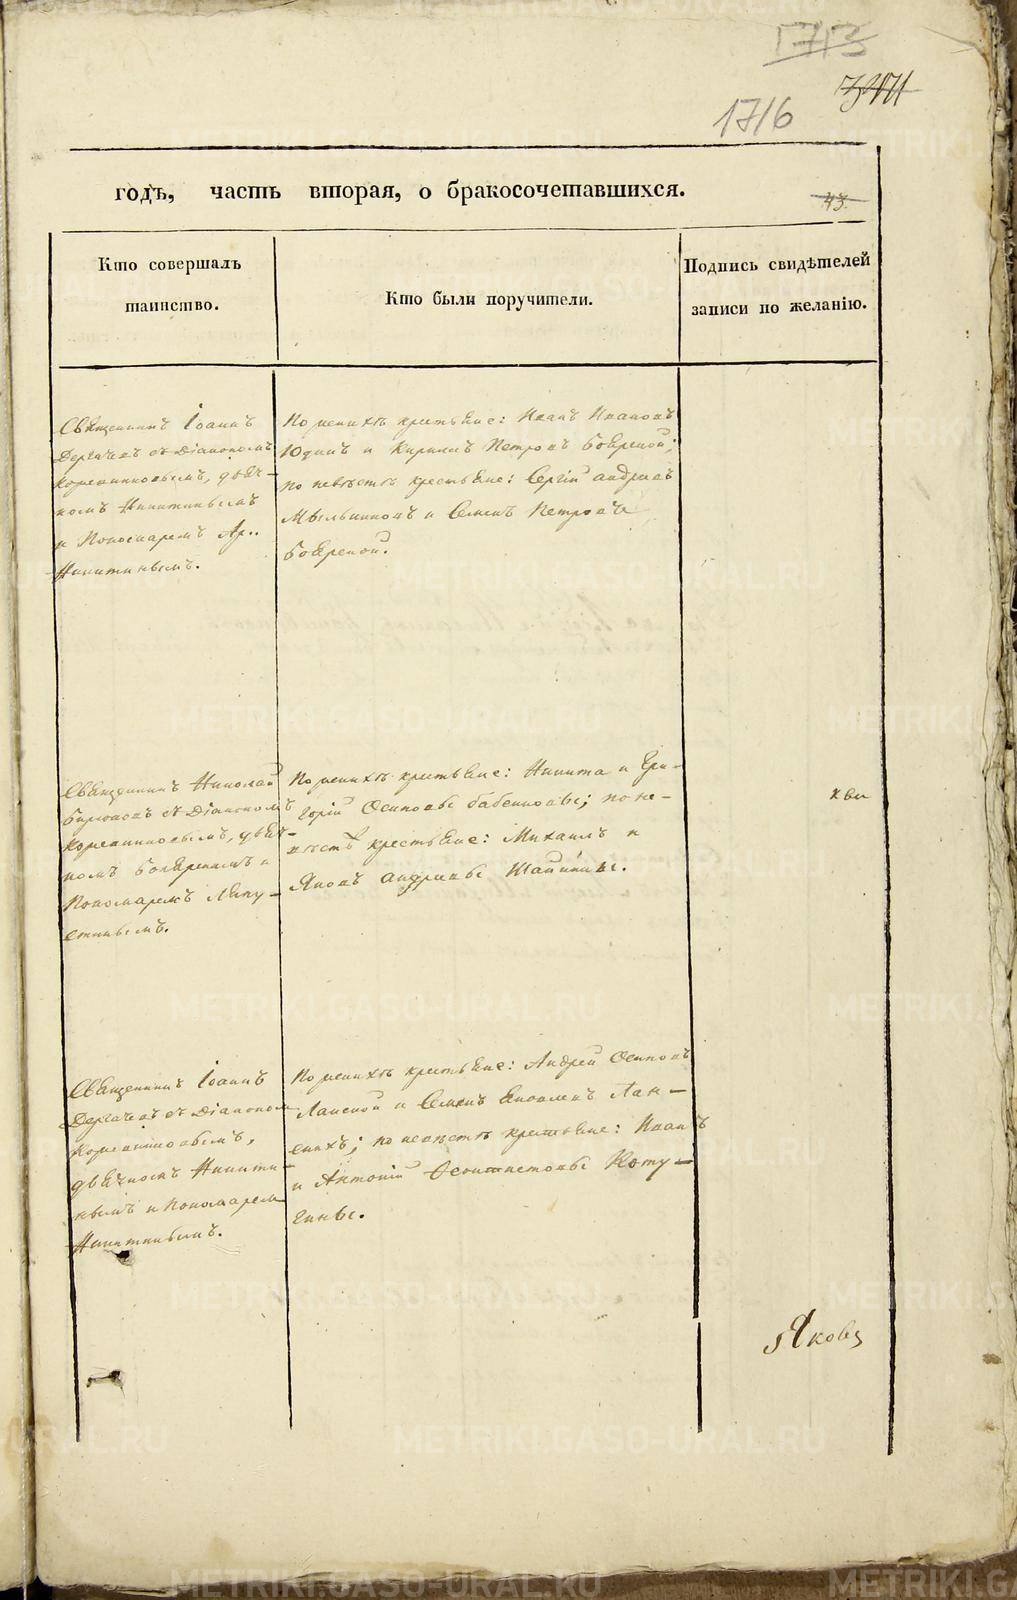 1713
1716
годъ, часть вторая, о бракосочетавшихся.
43.
Кто совершалъ
таинство.
Кто были поручители.
Подпись свидѣтелей
записи по желанію.
Священникъ Іоаннъ
Дергачевъ съ Діакономъ
дьяч-
комъ Никитинымъ
и Пономаремъ Ар..
Никитинымъ.
По женихѣ крестьяне: Иванъ Ивановъ
Юдинъ и Кирилъ Петровъ Боярской;
по невѣстѣ крестьяне: Сергій Андреевъ
Мыльниковъ и Семенъ Петровъ
Боярской.
Священникъ Николай
съ Діакономъ
дьяч-
комъ Боярскимъ и
Пономаремъ Лепу-
стинымъ.
По женихѣ крестьяне: Никита и Гри-
горій Осиповы Бабенковы; по не-
вѣстѣ крестьяне: Михаилъ и
Яковъ Андреевы
Священникъ Іоаннъ
Дергачевъ съ Діакономъ
дьячкомъ Никити-
нымъ и Пономаремъ
Никитинымъ.
По женихѣ крестьяне: Андрей Осиповъ
Ланской и Семенъ Яковлевъ Лан-
скихъ; по невѣстѣ крестьяне: Иванъ
и Антоній Коту-
гины.
Яковъ
METRIKI.GASO-URAL.RU